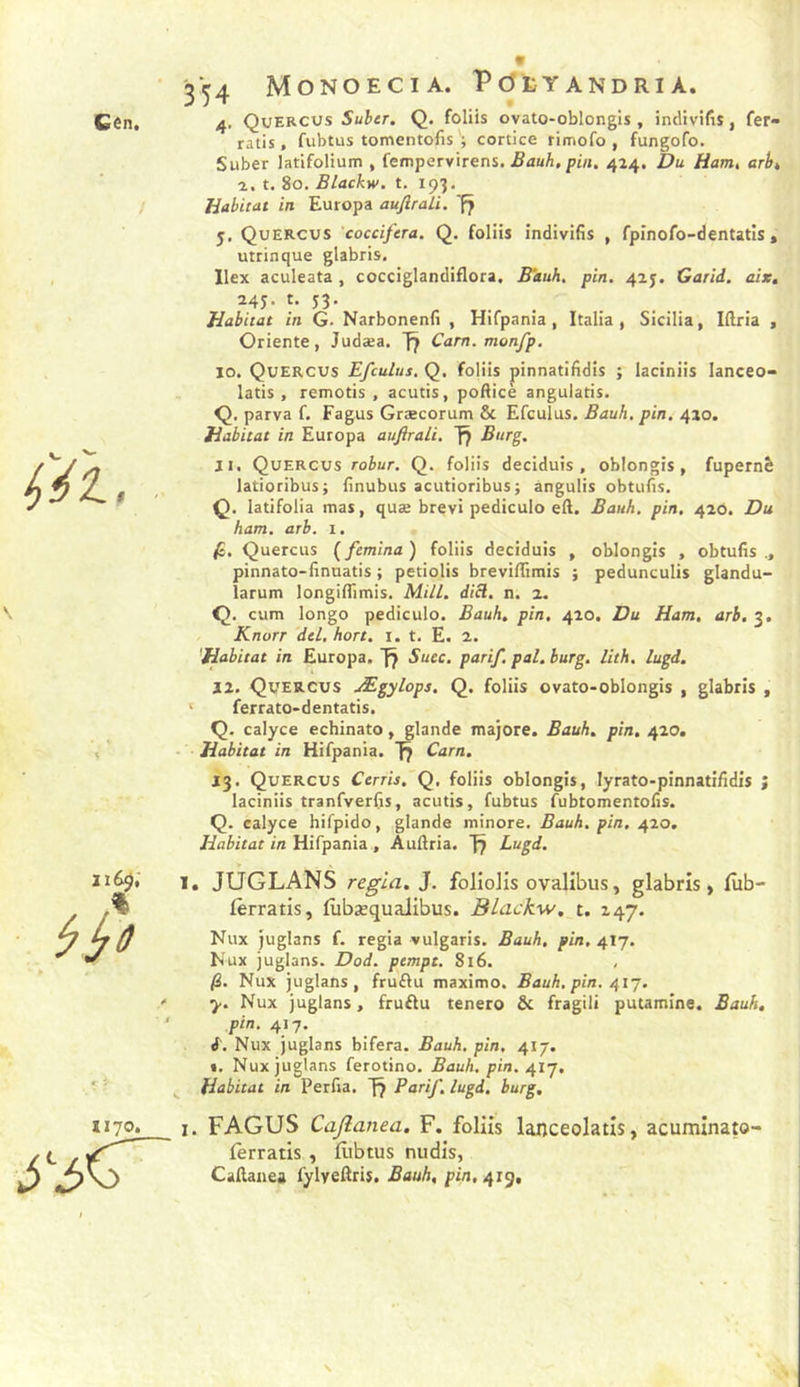 354 MONOECIA. POLYANDRIA.
Gen. 4. QUERCUS Suber. Q. foliis ovato-oblongis, indivisis, ser-
ratis, subtus tomentosis; cortice rimoso, fungoso.
Suber latifolium, sempervirens. Bauh. pin. 424. Du Ham. arb.
2. t. 80. Blackw. t. 193.
Habitat in Europa australi. ♄
5. QUERCUS coccifera. Q. foliis indivisis, spinoso-dentatis,
utrinque glabris.
Ilex aculeata, cocciglandiflora. Bauh. pin. 425. Garid. aix.
245. t. 53.
Habitat in G. Narbonensi, Hispania, Italia, Sicilia, Istria,
Oriente, Judæa. ♄ Carn. monsp.
10. QUERCUS Esculus. Q. foliis pinnatifidis; laciniis lanceo-
latis, remotis, acutis, postice angulatis.
Q. parva s. Fagus Græcorum & Esculus. Bauh. pin. 420.
Habitat in Europa australi. ♄ Burg.
11. QUERCUS robur. Q. foliis deciduis, oblongis, supernè
latioribus; sinubus acutioribus; angulis obtusis.
Q. latifolia mas, quæ brevi pediculo est. Bauh. pin. 420. Du
ham. arb. 1.
β. Quercus (femina) foliis deciduis, oblongis, obtusis,
pinnato-sinuatis; petiolis brevissimis; pedunculis glandu-
larum longissimis. Mill. dict. n. 2.
Q. cum longo pediculo. Bauh. pin. 420. Du Ham. arb. 3.
Knorr del. hort. 1. t. E. 2.
Habitat in Europa. ♄ Suec. paris. pal. burg. lith. lugd.
12. QUERCUS Ægylops. Q. foliis ovato-oblongis, glabris,
serrato-dentatis.
Q. calyce echinato, glande majore. Bauh. pin. 420.
Habitat in Hispania. ♄ Carn.
13. QUERCUS Cerris. Q. foliis oblongis, lyrato-pinnatifidis;
laciniis transversis, acutis, subtus subtomentosis.
Q. calyce hispido, glande minore. Bauh. pin. 420.
Habitat in Hispania, Austria. ♄ Lugd.
1169. 1. JUGLANS regia. J. foliolis ovalibus, glabris, sub-
serratis, subæqualibus. Blackw. t. 247.
Nux juglans s. regia vulgaris. Bauh. pin. 417.
Nux juglans. Dod. pempt. 816.
β. Nux juglans, fructu maximo. Bauh. pin. 417.
γ. Nux juglans, fructu tenero & fragili putamine. Bauh.
pin. 417.
δ. Nux juglans bifera. Bauh. pin. 417.
ε. Nux juglans serotino. Bauh. pin. 417.
Habitat in Persia. ♄ Paris. lugd. burg.
1170. 1. FAGUS Castanea. F. foliis lanceolatis, acuminato-
serratis, subtus nudis,
Castanea sylvestris. Bauh. pin. 419.